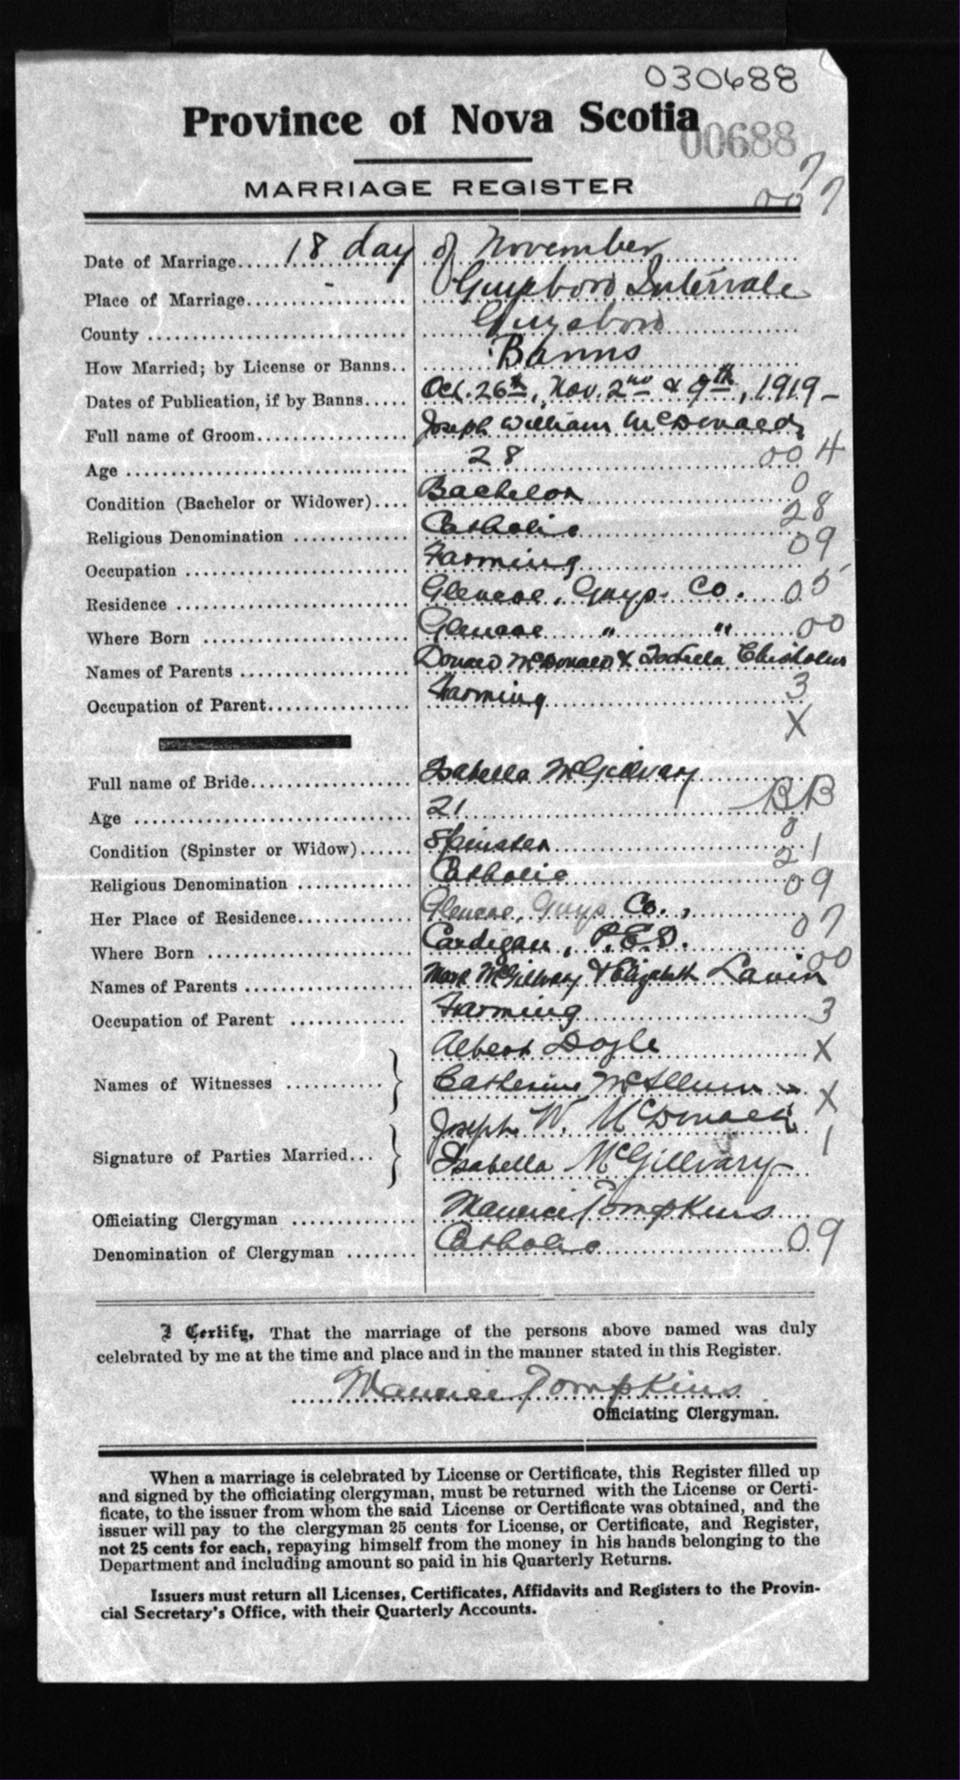 030688
Province of Nova Scotia
00688
7
MARRIAGE REGISTER
007
Date of Marriage..... 18 day of November
Place of Marriage.................. Guysboro Intervale
County .............................. Guysboro
How Married; by License or Banns.. Banns
Dates of Publication, if by Banns..... Oct. 26th, Nov. 2nd & 9th, 1919 -
Full name of Groom................ Joseph William McDonald
Age ................................. 28 004
Condition (Bachelor or Widower).... Bachelor 0
Religious Denomination ............. Catholic 28
Occupation ......................... Farming 09
Residence .......................... Glencoe, Guys. Co. 05
Where Born ........................ Glencoe " " 00
Names of Parents ................... Donald McDonald & Isabella Chisholm
Occupation of Parent................ Farming 3
X
Full name of Bride................. Isabella McGillvary
Age ................................ 21 BB
Condition (Spinster or Widow)...... Spinster 0
Religious Denomination ............. Catholic 21
Her Place of Residence............. Glencoe, Guys Co., 09
Where Born ....................... Cardigan, P.E.I. 07
Names of Parents .................. McGillvary & Elizabeth Lavin 00
Occupation of Parent ............. Farming 3
Albert Doyle X
Names of Witnesses ........... } Catherine X
Joseph W. McDonald
Signature of Parties Married... } Isabella McGillvary 1
Officiating Clergyman .............. Maurice Tompkins
Denomination of Clergyman ........ Catholic 09
I Certify, That the marriage of the persons above named was duly
celebrated by me at the time and place and in the manner stated in this Register.
Maurice Tompkins
Officiating Clergyman.
When a marriage is celebrated by License or Certificate, this Register filled up
and signed by the officiating clergyman, must be returned with the License or Certi-
ficate, to the issuer from whom the said License or Certificate was obtained, and the
issuer will pay to the clergyman 25 cents for License, or Certificate, and Register,
not 25 cents for each, repaying himself from the money in his hands belonging to the
Department and including amount so paid in his Quarterly Returns.
Issuers must return all Licenses, Certificates, Affidavits and Registers to the Provin-
cial Secretary's Office, with their Quarterly Accounts.